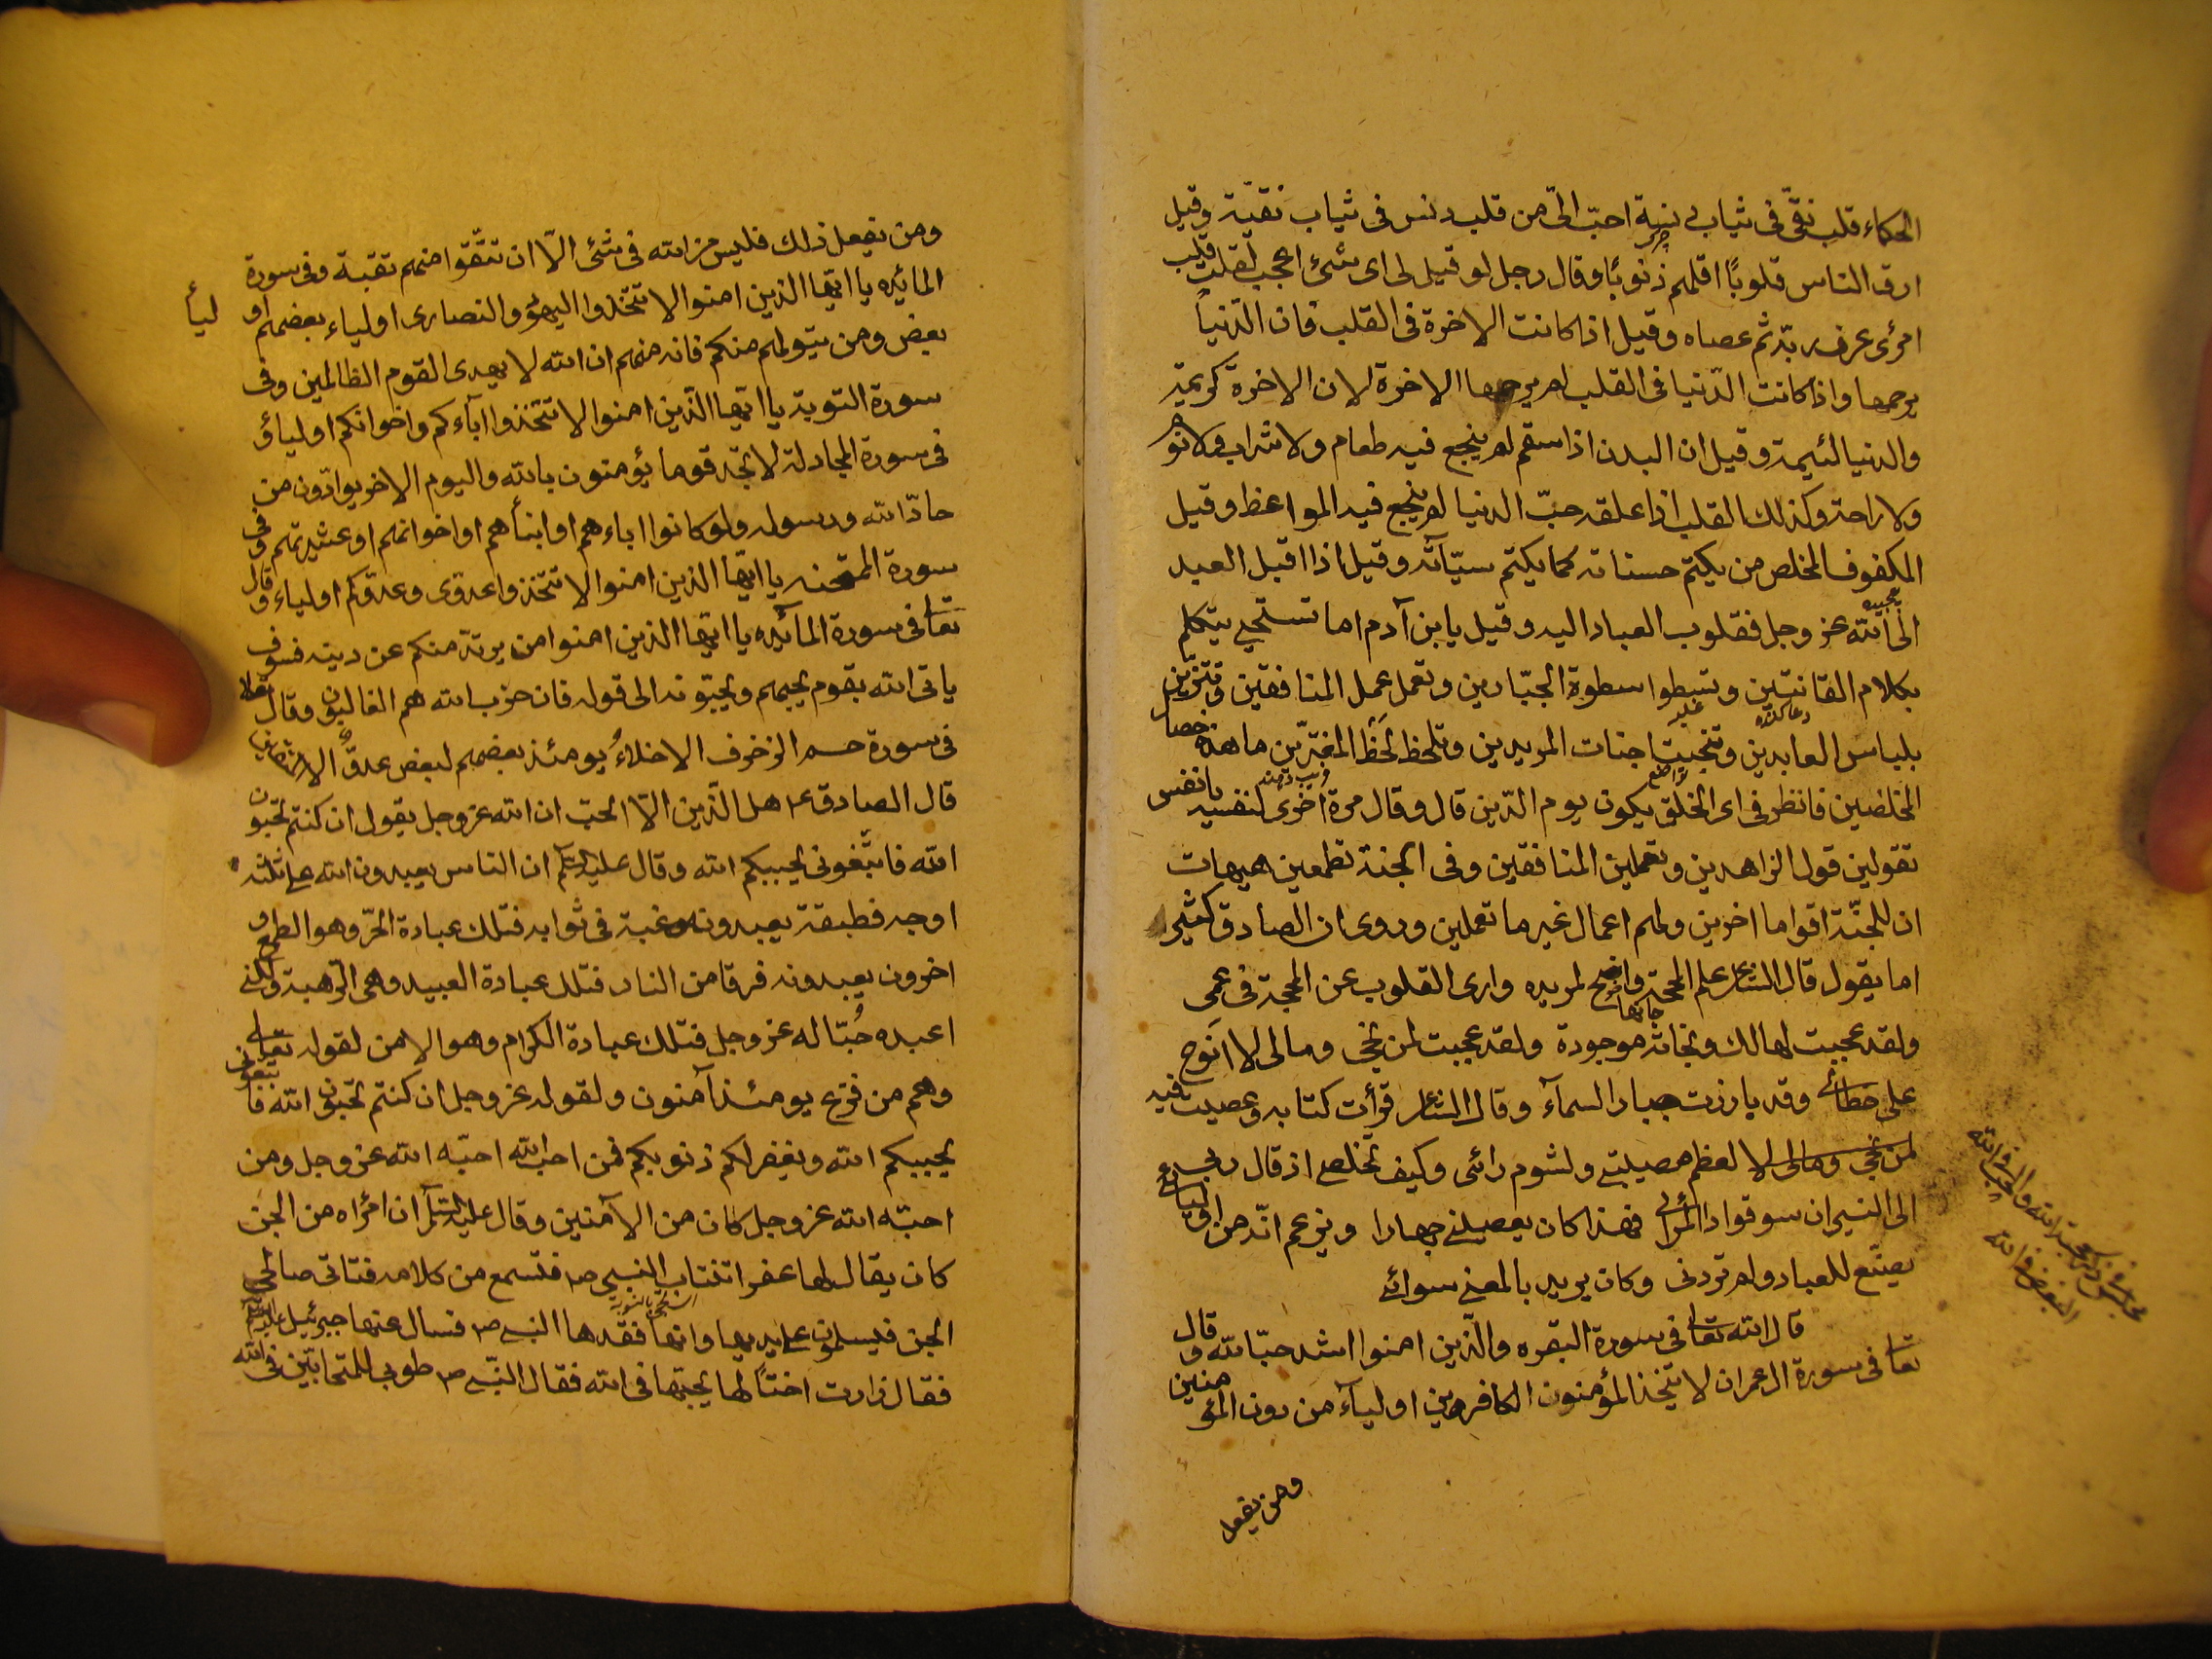 الحكماء قلب نقى فى ثياب دنسة احبّ الىّ من قلب دنس فى ثياب نقيّة وقيل
ارق الناس قلوبًا اقلهم ذنوبًا وقال رجل لو قيل لى اى شئ اعجب لقلت قلب
امرئ عرف ربّه ثم عصاه وقيل اذا كانت الاخرة فى القلب فان الدّنيا
يرحمها واذا كانت الدّنيا فى القلب لم يرحمها الاخرة لان الاخرة كريمة
والدنيا لئيمة وقيل ان البدن اذا سقم لم ينجع فيه طعام ولا شراب ولا نوم
ولا راحة وكذلك القلب اذا علقه حبّ الدنيا لم ينجع فيه المواعظ وقيل
المكفوف المخلص من يكتم حسناته كما يكتم سيّآته وقيل اذا اقبل العبد
الى الله عز وجل فقلوب العباد اليه وقيل يابن آدم اما تستحيى تتكلم
بكلام القانتين وتسطوا سطوة الجبّارين وتعمل عمل المنافقين وتتزيّن
بلباس العابدين وتخبت اخبات المريدين وتلحظ لحظ المغترّين ما هذه خصال
المخلصين فانظر فى اى الخلق يكون يوم الدّين قال وقال مرة اخرى لنفسه يا نفس
تقولين قول الزاهدين وتعملين المنافقين وفى الجنة تطمعين هيهات
ان للجنّة اقواما اخرين ولهم اعمال غير ما تعملين وروى ان الصادق كثيرا
اما يقول قال الشاعر علم المحجة واضح لمريده وارى القلوب عن المحجة فى عمى
ولقد عجبت لهالك ونجاته موجودة ولقد عجبت لمن نجى ومالى لا انوح
على خطائى وقد بارزت جبار السمآء وقال الشاعر قرأت كتابه وعصيت فيه
لمن نجى ومالى لا لعظم مصيبتى ولشوم رائى وكيف تخلصى اذ قال ربى
الى النيران سوقوا ذا المرائى فهذا كان يعصينى جهارا ويزعم انّه من اوليائى
تصنّع للعباد ولم تردنى وكان يريد بالمعنى سوائى
قال الله تعالى فى سورة البقره والّذين امنوا اشد حبّا لله وقال
تعالى فى سورة ال عمران لا يتخذ المؤمنون الكافرين اوليآء من دون المؤمنين
ومن يفعل
ومن يفعل ذلك فليس من الله فى شئى الاّ ان تتّقوا منهم تقية وفى سورة
المائده يا ايّها الذين امنوا لا تتخذوا اليهود والنصارى اولياء بعضهم اوليأ
بعض ومن يتولهم منكم فانه منهم ان الله لا يهدى القوم الظالمين وفى
سورة التوبة يا ايّها الّذين امنوا لا تتخذوا اباءكم واخوانكم اولياء و
فى سورة المجادلة لا تجد قوما يؤمنون بالله واليوم الاخر يوادّون من
حادّ الله ورسوله ولو كانوا اباءهم او ابنأهم او اخوانهم او عشيرتهم وفى
سورة الممتحنه يا ايّها الذين امنوا لا تتخذوا عدوّى وعدوّكم اولياء وقال
تعالى فى سورة المآئده يا ايّها الذين امنوا من يرتدّ منكم عن دينه فسوف
ياتى الله بقوم يحبهم ويحبّونه الى قوله فان حزب الله هم الغالبون وقال تعالى
فى سورة حم الزخرف الاخلاءُ يومئذ بعضهم لبعض عدوٌّ الا المتقين
قال الصادق ع هل الّدين الاّ الحبّ ان الله عز وجل يقول ان كنتم تحبون
الله فاتّبعونى يحببكم الله وقال عليه السّلم ان الناس يعبدون الله على ثلثه
اوجه فطبقة يعبدونه رغبة فى ثوابه فتلك عبادة الحرّ وهو الطمع و
اخرون يعبدونه فرقا من النار فتلك عبادة العبيد وهى الرّهبة ولكنى
اعبده حُبّا له عز وجل فتلك عبادة الكرام وهو الامن لقوله تعالى
وهم من فزع يومئذ آمنون ولقوله عز وجل ان كنتم تحبّون الله فاتبعونى
يحببكم الله ويغفر لكم ذنوبكم فمن احب الله احبّه الله عز وجل ومن
احبّه الله عز وجل كان من الآمنين وقال عليه السّلم ان امراه من الجن
كان يقال لها عفرا تنتاب النبى ص فتسمع من كلامه فتاتى صالحى
الجن فيسلمون على يديها وانها فقدها النبى ص فسال عنها جبرئيل عليه السلم
فقال زارت اختًا لها يحبّها فى الله فقال النبّى ص طوبى للمتحابّين فى الله